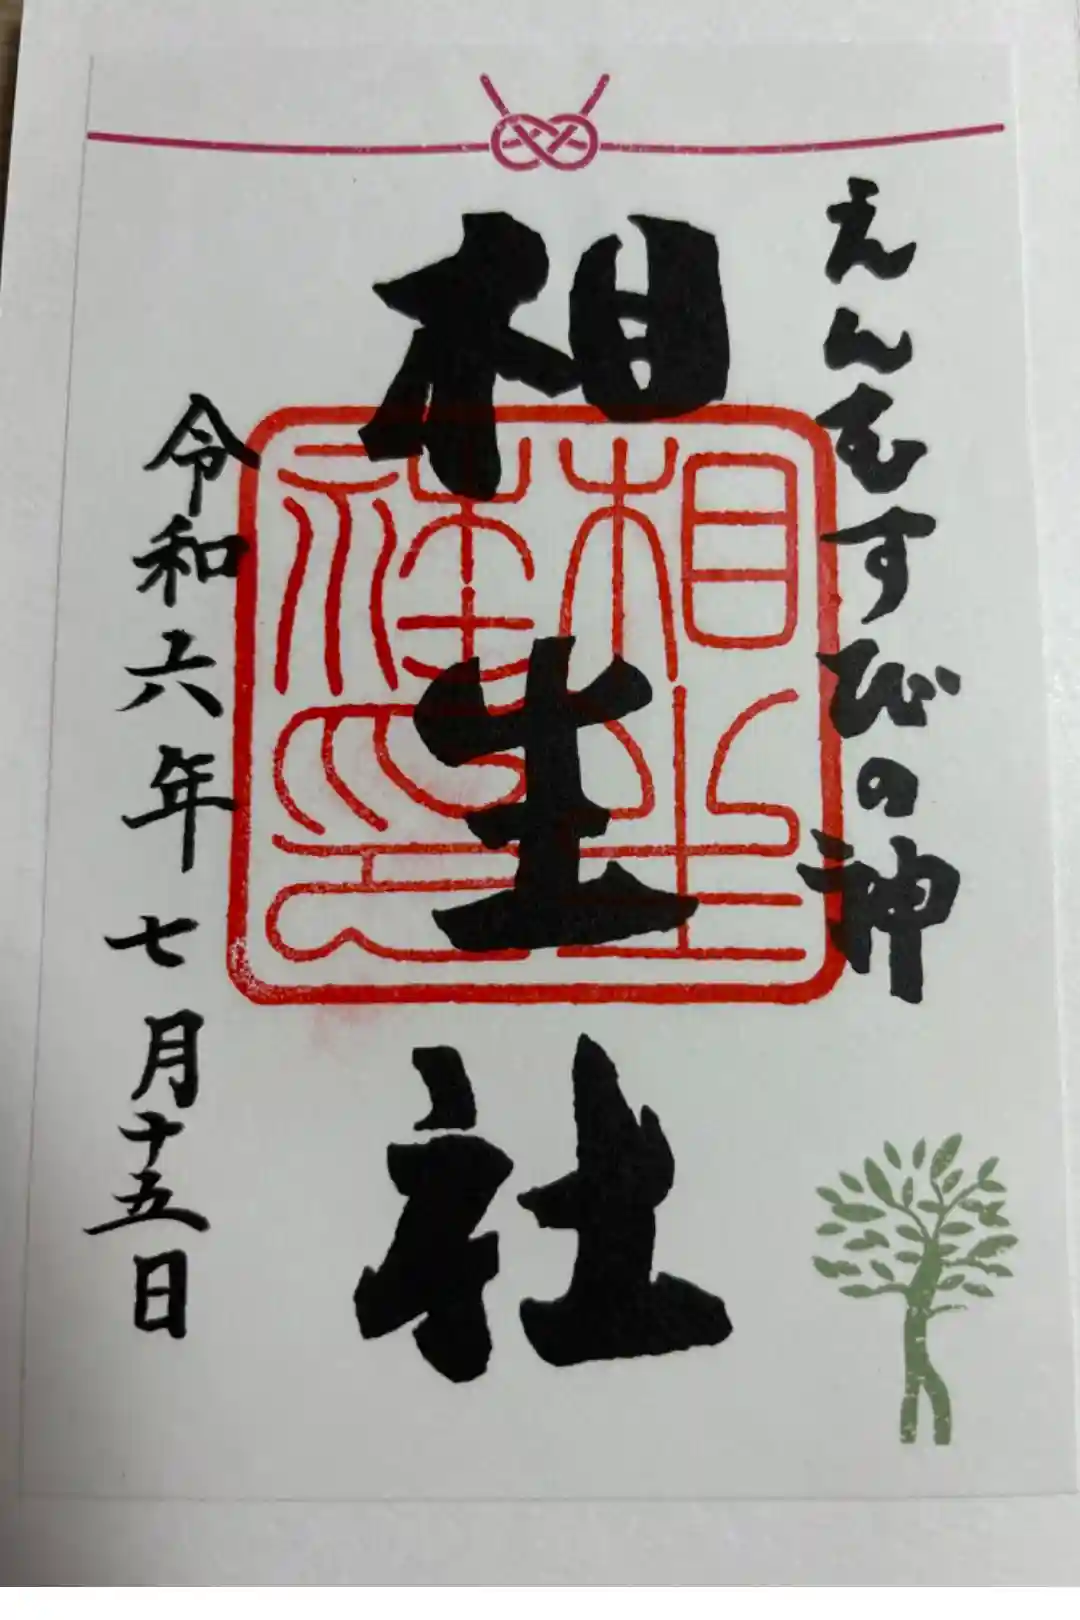 えんむすびの神
相生社
令和六年七月十五日